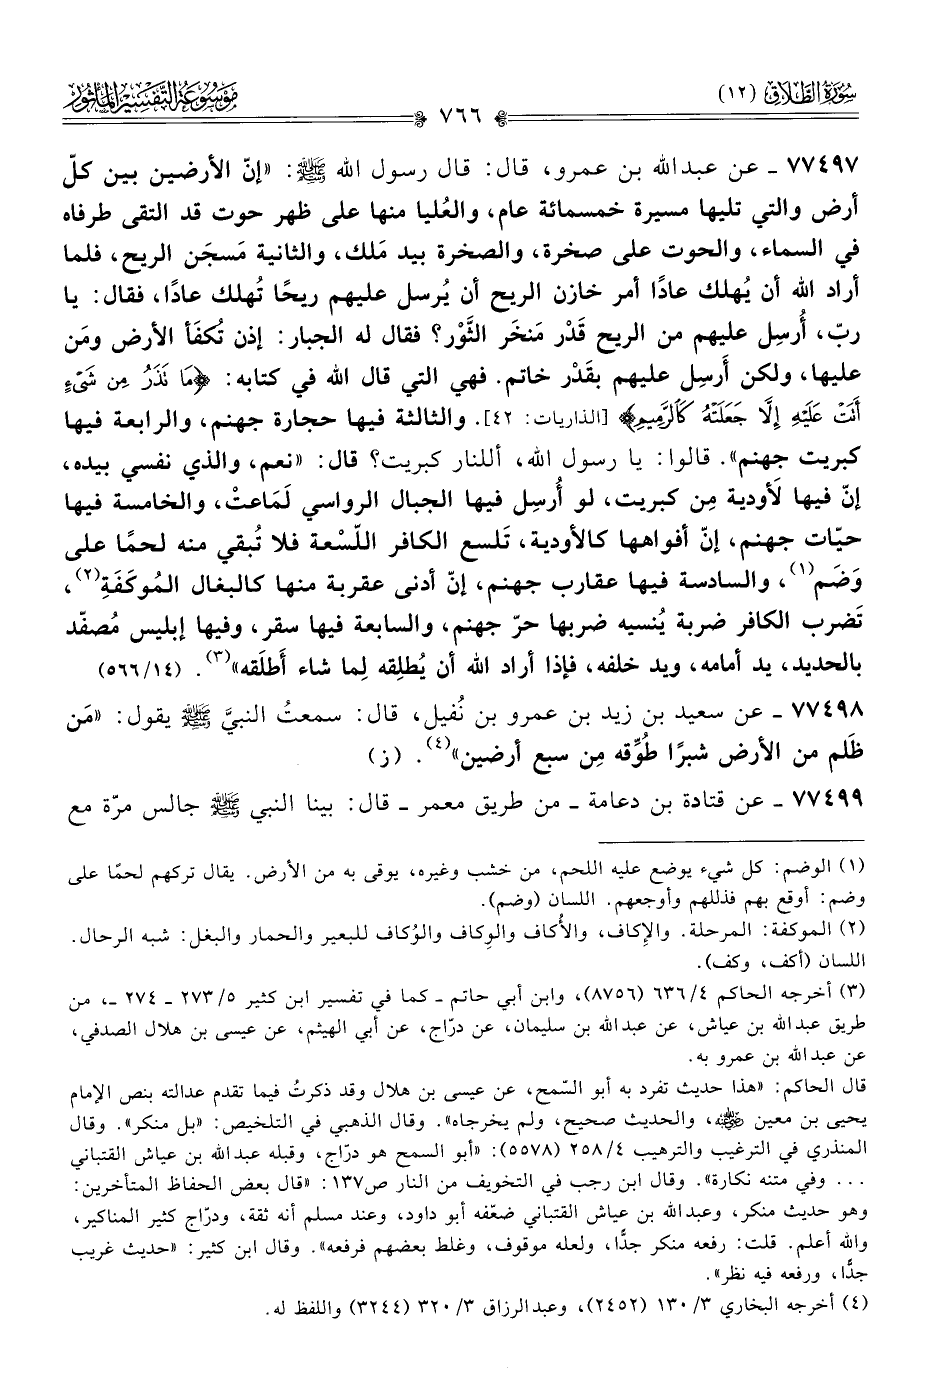 سُورَةُ الطَّلَاقِ (١٢)
٧٦٦
مَوْسُوعَةُ التَّفْسِيرِ المَأْثُورِ
٧٧٤٩٧ ـ عن عبدالله بن عمرو، قال: قال رسول الله ﷺ: «إنّ الأرضين بين كلّ
أرض والتي تليها مسيرة خمسمائة عام، والعُليا منها على ظهر حوت قد التقى طرفاه
في السماء، والحوت على صخرة، والصخرة بيد مَلك، والثانية مَسجَن الريح، فلما
أراد الله أن يُهلك عادًا أمر خازن الريح أن يُرسل عليهم ريحًا تُهلك عادًا، فقال: يا
ربّ، أُرسِل عليهم من الريح قَدْر مَنخَر الثَّوْر؟ فقال له الجبار: إذن تُكفَأ الأرض ومَن
عليها، ولكن أَرسِل عليهم بقَدْر خاتم. فهي التي قال الله في كتابه: ﴿مَا نَذَرُ مِن شَىْءٍ
أَتَتْ عَلَيْهِ إِلَّا جَعَلَتْهُ كَالرَّمِيمِ﴾ [الذاريات: ٤٢]. والثالثة فيها حجارة جهنم، والرابعة فيها
كبريت جهنم». قالوا: يا رسول الله، أللنار كبريت؟ قال: «نعم، والذي نفسي بيده،
إنّ فيها لَأودية مِن كبريت، لو أُرسِل فيها الجبال الرواسي لَمَاعتْ، والخامسة فيها
حيّات جهنم، إنّ أفواهها كالأودية، تَلسع الكافر اللّسْعة فلا تُبقي منه لحمًا على
وَضَم(١)، والسادسة فيها عقارب جهنم، إنّ أدنى عقربة منها كالبغال المُوكَفَةِ(٢)،
تَضرب الكافر ضربة يُنسيه ضربها حرّ جهنم، والسابعة فيها سقر، وفيها إبليس مُصفّد
بالحديد، يد أمامه، ويد خلفه، فإذا أراد الله أن يُطلِقه لِما شاء أَطلَقه»(٣). (٥٦٦/١٤)
٧٧٤٩٨ ـ عن سعيد بن زيد بن عمرو بن نُفيل، قال: سمعتُ النبيَّ ﷺ يقول: «مَن
ظَلم من الأرض شبرًا طُوِّقه مِن سبع أرضين»(٤). (ز)
٧٧٤٩٩ ـ عن قتادة بن دعامة ـ من طريق معمر ـ قال: بينا النبي ﷺ جالس مرّة مع
(١) الوضم: كل شيء يوضع عليه اللحم، من خشب وغيره، يوقى به من الأرض. يقال تركهم لحمًا على
وضم: أوقع بهم فذللهم وأوجعهم. اللسان (وضم).
(٢) الموكفة: المرحلة. والإكاف، والأكاف والوِكاف والوُكاف للبعير والحمار والبغل: شبه الرحال.
اللسان (أكف، وكف).
(٣) أخرجه الحاكم ٤/ ٦٣٦ (٨٧٥٦)، وابن أبي حاتم ـ كما في تفسير ابن كثير ٥/ ٢٧٣ ـ ٢٧٤ ـ، من
طريق عبدالله بن عياش، عن عبدالله بن سليمان، عن درّاج، عن أبي الهيثم، عن عيسى بن هلال الصدفي،
عن عبدالله بن عمرو به.
قال الحاكم: «هذا حديث تفرد به أبو السّمح، عن عيسى بن هلال وقد ذكرتُ فيما تقدم عدالته بنص الإمام
يحيى بن معين ﵁، والحديث صحيح، ولم يخرجاه». وقال الذهبي في التلخيص: «بل منكر». وقال
المنذري في الترغيب والترهيب ٤/ ٢٥٨ (٥٥٧٨): «أبو السمح هو درّاج، وقبله عبدالله بن عياش القتباني
... وفي متنه نكارة». وقال ابن رجب في التخويف من النار ص١٣٧: «قال بعض الحفاظ المتأخرين:
وهو حديث منكر، وعبدالله بن عياش القتباني ضعّفه أبو داود، وعند مسلم أنه ثقة، ودرّاج كثير المناكير،
والله أعلم. قلت: رفعه منكر جدًّا، ولعله موقوف، وغلط بعضهم فرفعه». وقال ابن كثير: «حديث غريب
جدًّا، ورفعه فيه نظر».
(٤) أخرجه البخاري ٣/ ١٣٠ (٢٤٥٢)، وعبدالرزاق ٣/ ٣٢٠ (٣٢٤٤) واللفظ له.